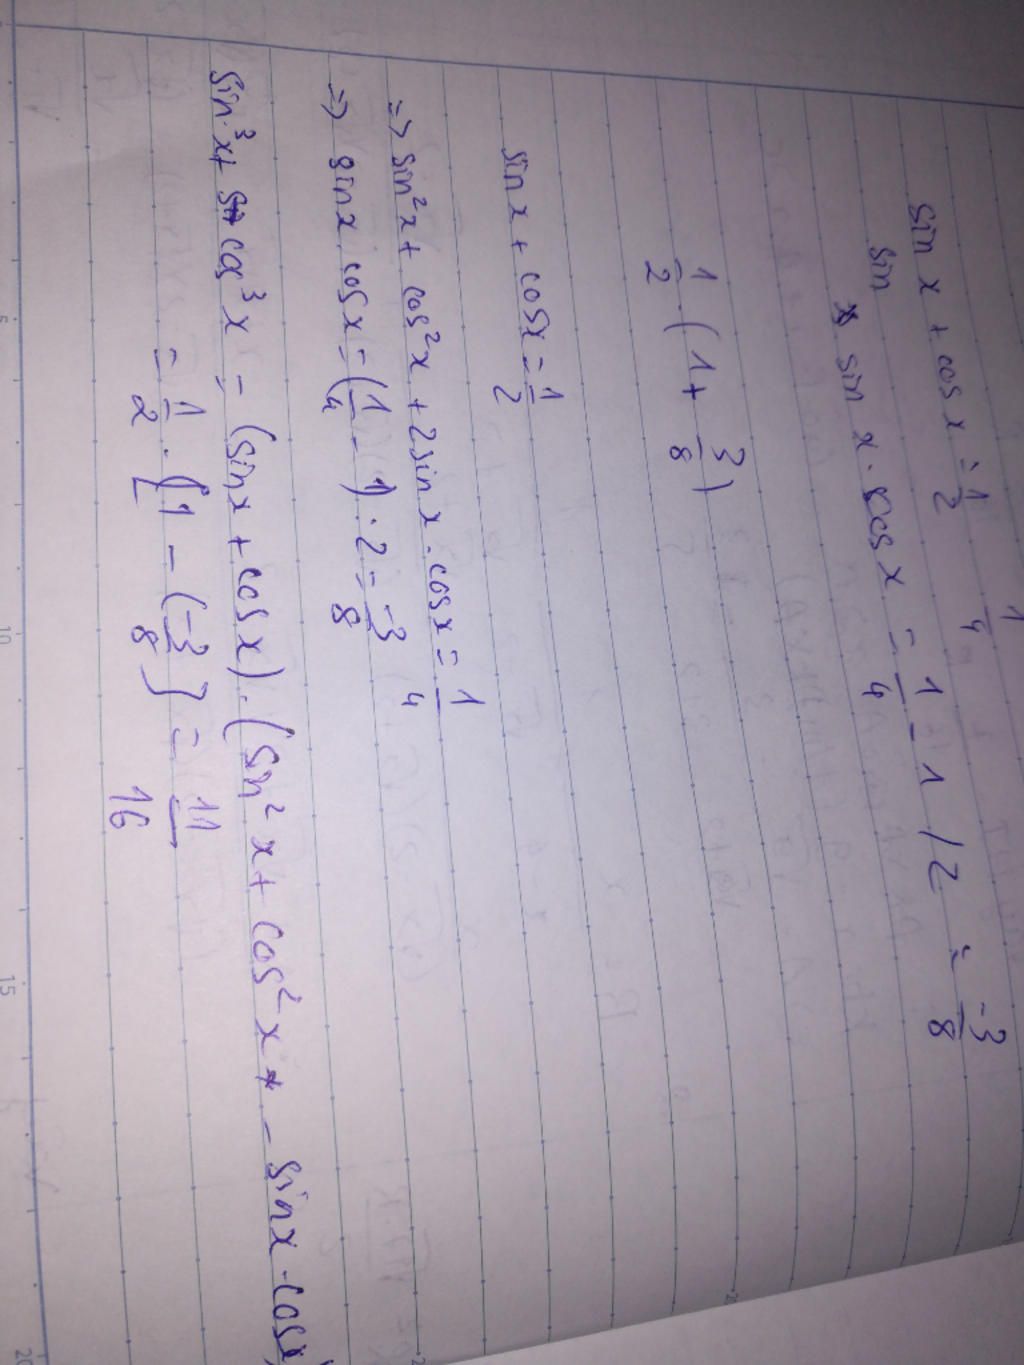 1/4
sin x + cos x = 1/2
sin
sin x . cos x = 1/4 - 1 / 2 = -3/8
1/2 . (1 + 3/8)
sin x + cos x = 1/2
=> sin² x + cos² x + 2 sin x . cos x = 1/4
=> sin x cos x = (1/4 - 1) . 2 = -3/8
sin³ x + cos³ x = (sin x + cos x) . (sin² x + cos² x - sin x . cos x)
= 1/2 . [1 - (-3/8)] = 11/16
5
10
15
20